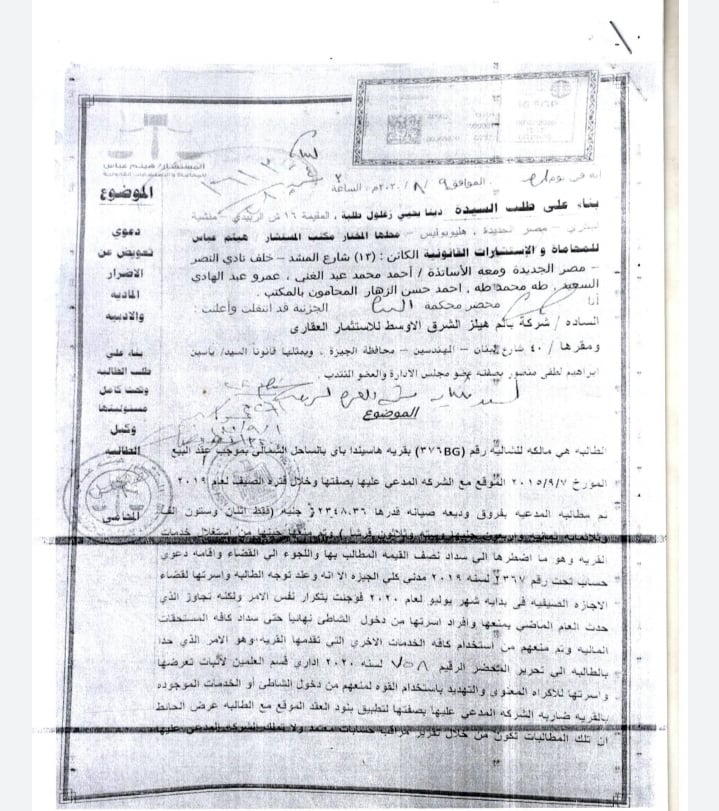 المستشار/ هيثم عباس
للمحاماة والاستشارات القانونية
انه فى يوم الموافق ٩ / ٨ /٢٠٢٠م، الساعة
بناء على طلب السيدة / دينا يحيي زغلول طلبة ، المقيمة ١٦ ش الزبيدي – منشية
البكري – مصر الجديدة ، هليوبوليس – محلها المختار مكتب المستشار / هيثم عباس
للمحاماة و الإستشارات القانونية الكائن : (١٣) شارع المشد – خلف نادي النصر
– مصر الجديدة ومعه الأساتذة / أحمد محمد عبد الغني ، عمرو عبد الهادي
السعيد ، طه محمد طه ، احمد حسن الزهار المحامون بالمكتب .
أنا محضر محكمة الجزئية قد انتقلت وأعلنت :
الساده / شركة بالم هيلز الشرق الاوسط للاستثمار العقارى
ومقرها / ٤٠ شارع لبنان – المهندسين – محافظة الجيزة ، ويمثلها قانونا السيد/ ياسين
ابراهيم لطفى منصور بصفته عضو مجلس الادارة والعضو المنتدب .
الموضوع
الطالبه هي مالكه للشاليه رقم (٣٧٦BG) بقريه هاسيندا باى بالساحل الشمالى بموجب عقد البيع
المورخ ٢٠١٥/٩/٧ الموقع مع الشركه المدعي عليها بصفتها وخلال فتره الصيف لعام ٢٠١٩
تم مطالبه المدعيه بفروق وديعه صيانه قدرها ٦٢٣٤٨.٣٦ جنيه (فقط اثنان وستون الف
وثلاثمائه ثمانيه واربعون جنيها وستة وثلاثون قرشا ) وتم منعها حينها من استغلال خدمات
القريه وهو ما اضطرها الى سداد نصف القيمه المطالب بها واللجوء الي القضاء واقامه دعوى
حساب تحت رقم ٢٣٦٧ لسنه ٢٠١٩ مدنى كلي الجيزه الا انه وعند توجه الطالبه واسرتها لقضاء
الاجازه الصيفيه فى بدايه شهر يوليو لعام ٢٠٢٠ فوجئت بتكرار نفس الامر ولكنه تجاوز الذي
حدث العام الماضي بمنعها وأفراد اسرتها من دخول الشاطى نهائيا حتى سداد كافه المستحقات
الماليه وتم منعهم من أستخدام كافه الخدمات الاخري التى تقدمها القريه وهو الامر الذي حدا
بالطالبه الى تحرير المحضر الرقيم ٧٥٨ لسنه ٢٠٢٠ اداري قسم العلمين لاثبات تعرضها
واسرتها للاكراه المعنوى والتهديد باستخدام القوه لمنعهم من دخول الشاطى أو الخدمات الموجوده
بالقريه ضاربه الشركه المدعي عليها بصفتها لتطبيق بنود العقد الموقع مع الطالبه عرض الحائط
ان تلك المطالبات تكون من خلال تقرير مراقب حسابات معتمد ولا تملك الشركه المدعى عليها
الموضوع
دعوي
تعويض عن
الاضرار
الماديه
والادبيه
بناء على
طلب الطالبه
وتحت كامل
مسئوليتها
وكيل
الطالبه
المحامي